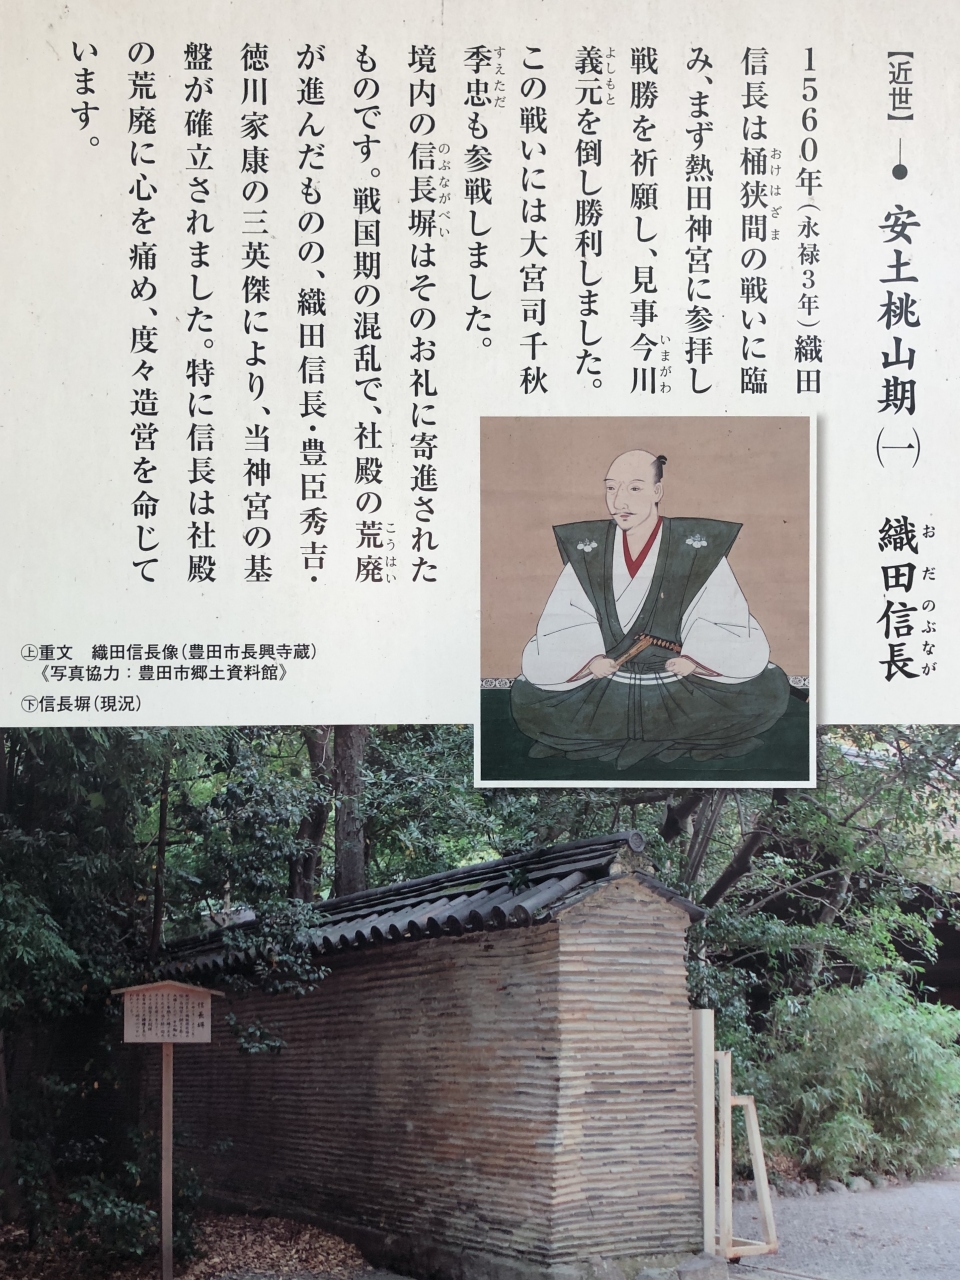 【近世】―● 安土桃山期(一) 織田信長
おだのぶなが
1560年(永禄3年)織田
信長は桶狭間の戦いに臨
おけはざま
み、まず熱田神宮に参拝し
戦勝を祈願し、見事今川
いまがわ
義元を倒し勝利しました。
よしもと
この戦いには大宮司千秋
季忠も参戦しました。
すえただ
境内の信長塀はそのお礼に寄進された
のぶながべい
ものです。戦国期の混乱で、社殿の荒廃
こうはい
が進んだものの、織田信長・豊臣秀吉・
徳川家康の三英傑により、当神宮の基
盤が確立されました。特に信長は社殿
の荒廃に心を痛め、度々造営を命じて
います。
㊤重文 織田信長像(豊田市長興寺蔵)
《写真協力:豊田市郷土資料館》
㊦信長塀(現況)
信長塀